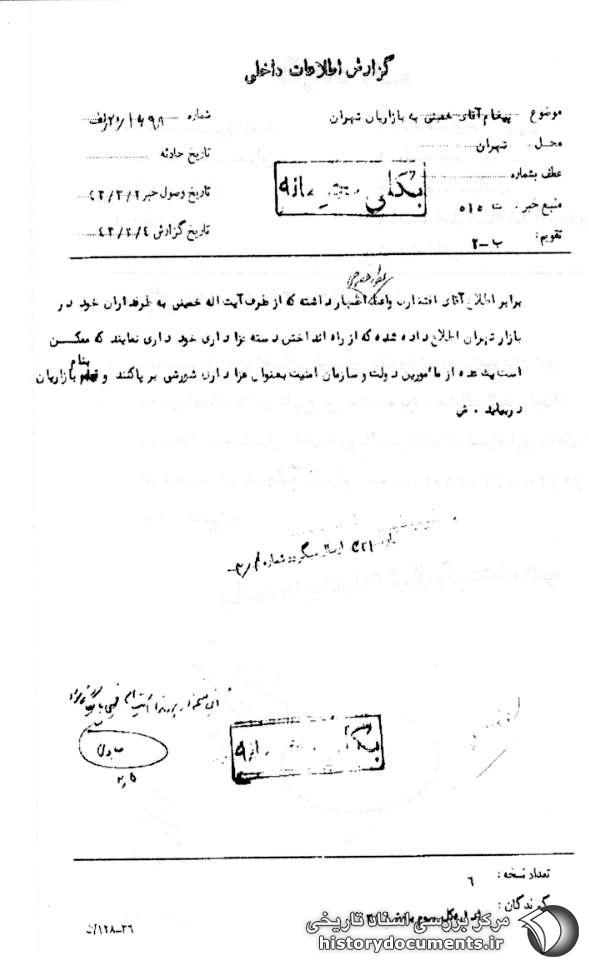 گزارش اطلاعات داخلی
موضوع پیغام آقای خمینی به بازاریان تهران
شماره
محل تهران
تاریخ حادثه
عطف بشماره
بکلی محرمانه
تاریخ وصول خبر ۴۳/۳/۲
منبع خبر ت ۵۱۵
تاریخ گزارش ۴۳/۳/۴
تقویم: ب-۲
برابر اطلاع آقای افتخاری واعظ اظهار داشته که از طرف آیت اله خمینی به طرفداران خود در
بازار تهران اطلاع داده شده که از راه انداختن دسته عزاداری خود داری نمایند که ممکن
است یک عده از مامورین دولت و سازمان امنیت بعنوان عزاداری شورشی بر پاکنند و بنام بازاریان
در بیاید . ش
ارسال میگردد شماره
بکلی محرمانه
تعداد نسخه: ۶
گیرندگان:
۱۲۸-۳۶/ت
مرکز بررسی اسناد تاریخی
historydocuments.ir